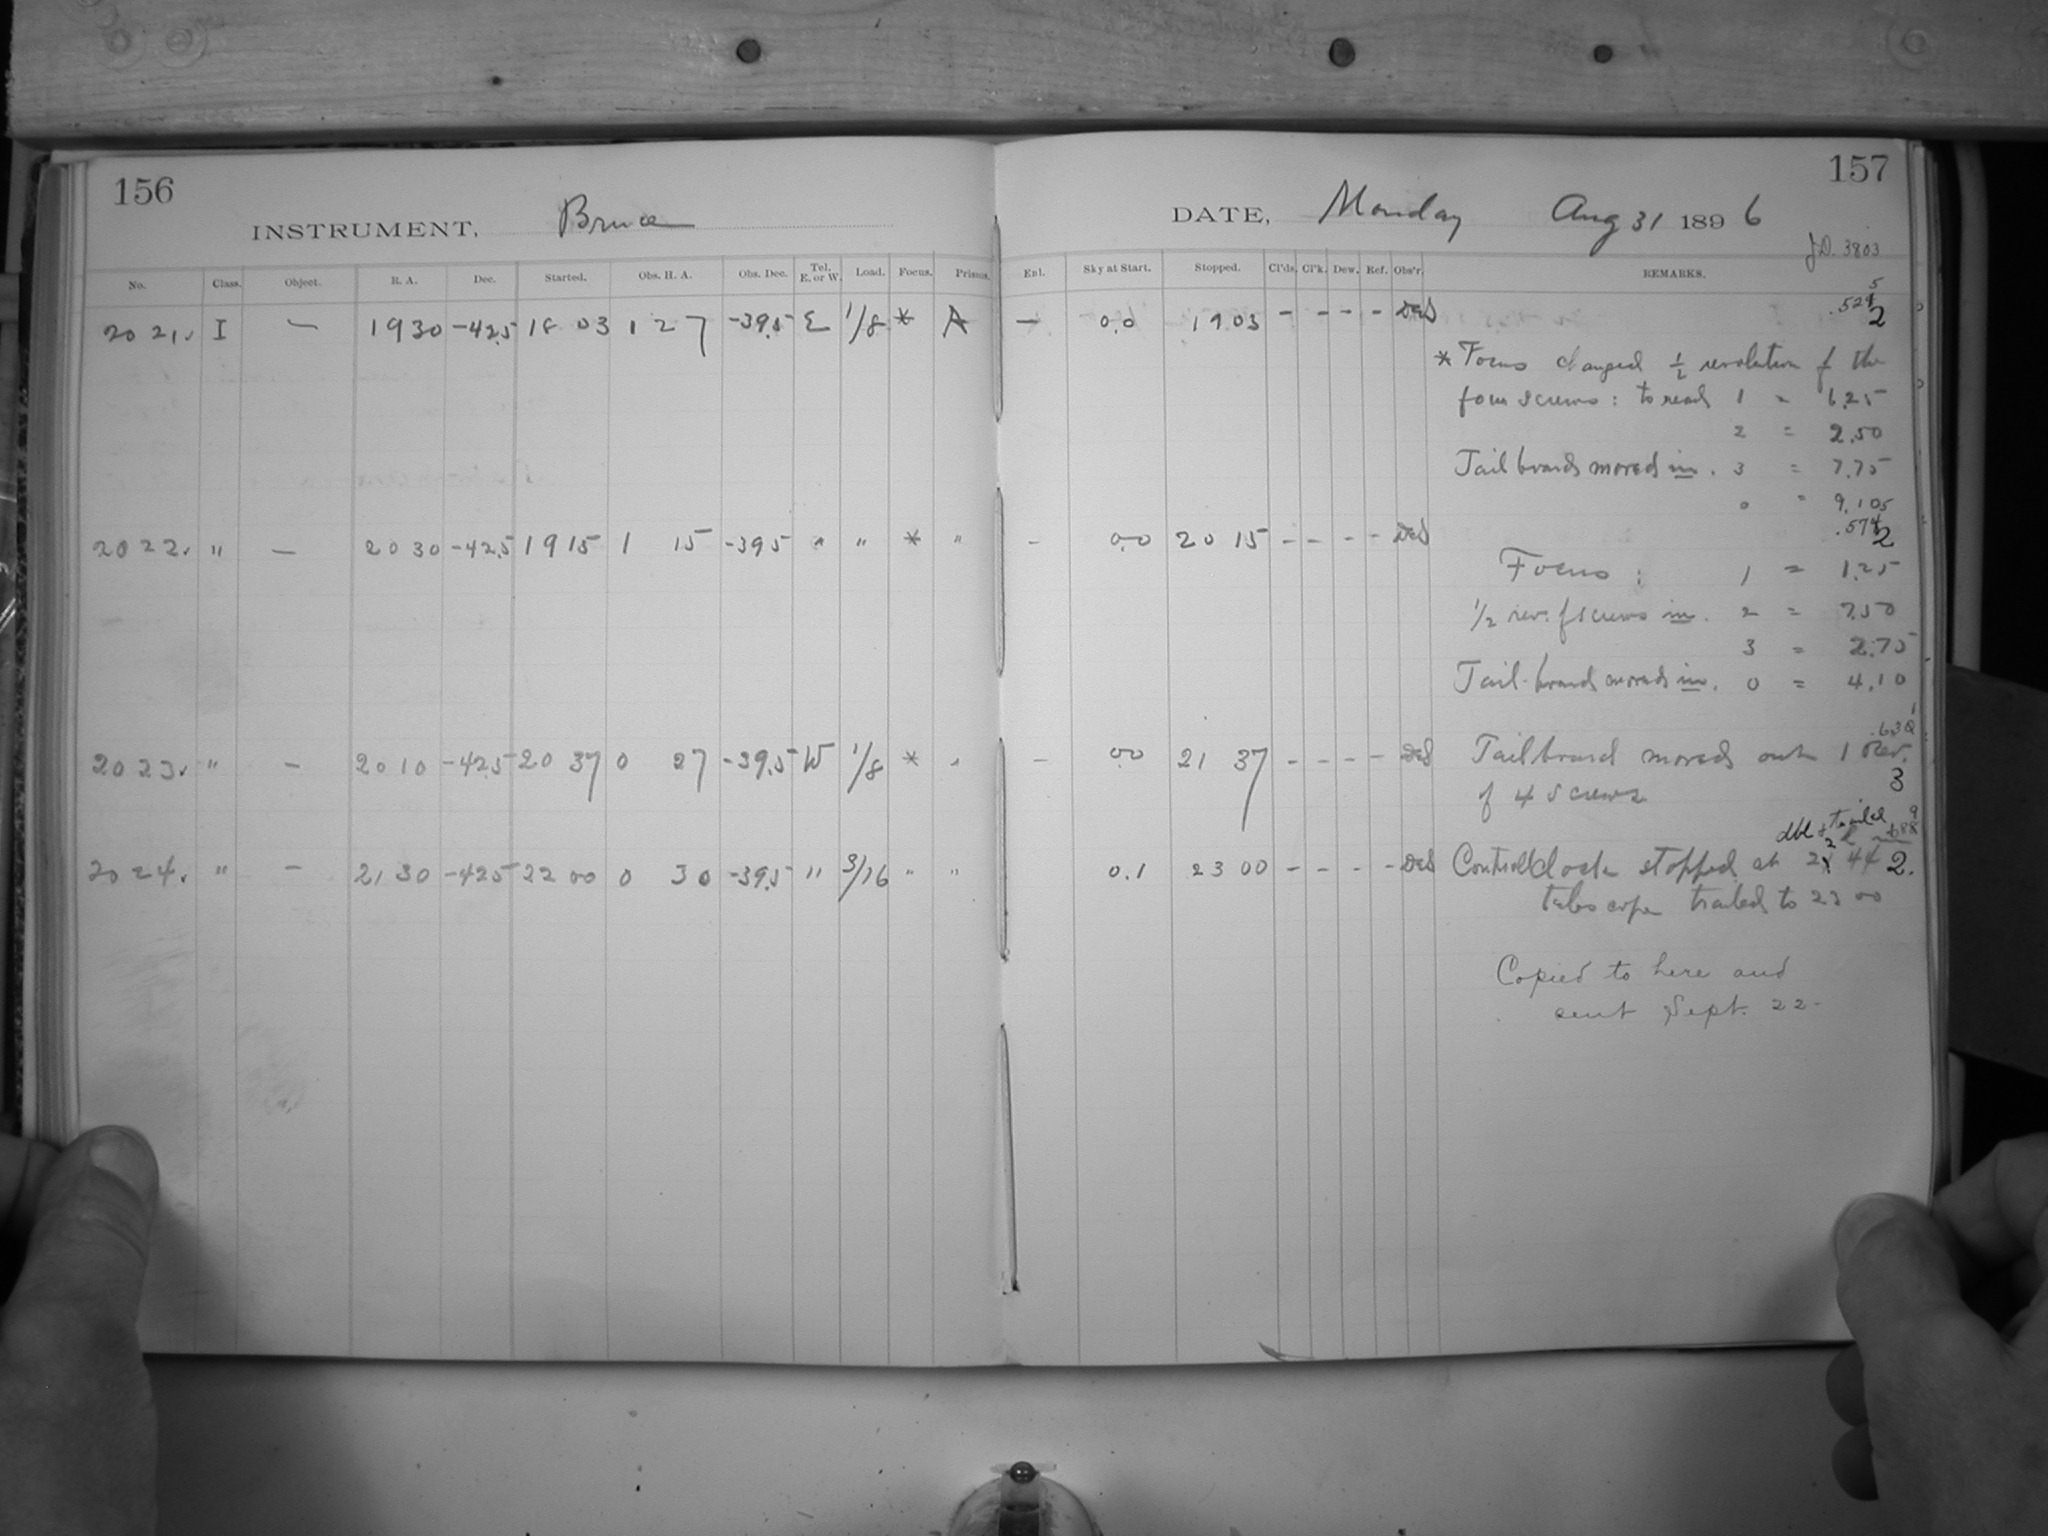 156
INSTRUMENT, Bruce
No. Class. Object. R. A. Dec. Started. Obs. H. A. Obs. Dec. Tel. E. or W. Load. Focus. Prisms.
2021. I — 19 30 -42.5 18 03 1 27 -39.5 E 1/8 * A
2022. " — 20 30 -42.5 19 15 1 15 -39.5 " " * "
2023. " — 20 10 -42.5 20 37 0 27 -39.5 W 1/8 * "
2024. " — 21 30 -42.5 22 00 0 30 -39.5 " 3/16 " "
157
DATE, Monday Aug 31 1896
J.D. 3803
Enl. Sky at Start. Stopped. Cl'ds. Cl'k. Dew. Ref. Obs'r. REMARKS.
— 0.0 19 03 - - - - DeS 2
* Focus changed 1/2 revolution of the
four screws : to read 1 = 6.25
2 = 2.50
Tail board moved in. 3 = 7.75
0 " 9.105
- 0.0 20 15 - - - - DeS 2
Focus : 1 = 1.25
1/2 rev. of screws in. 2 = 7.50
3 = 2.75
Tail-board moved in. 0 = 4.10
- 0.0 21 37 - - - - DeS Tailboard moved out 1 Rev.
of 4 screws 3
dbl & trailed
0.1 23 00 - - - - DeS Control clock stopped at 22 44 2.
telescope trailed to 23 00
Copied to here and
sent Sept. 22-